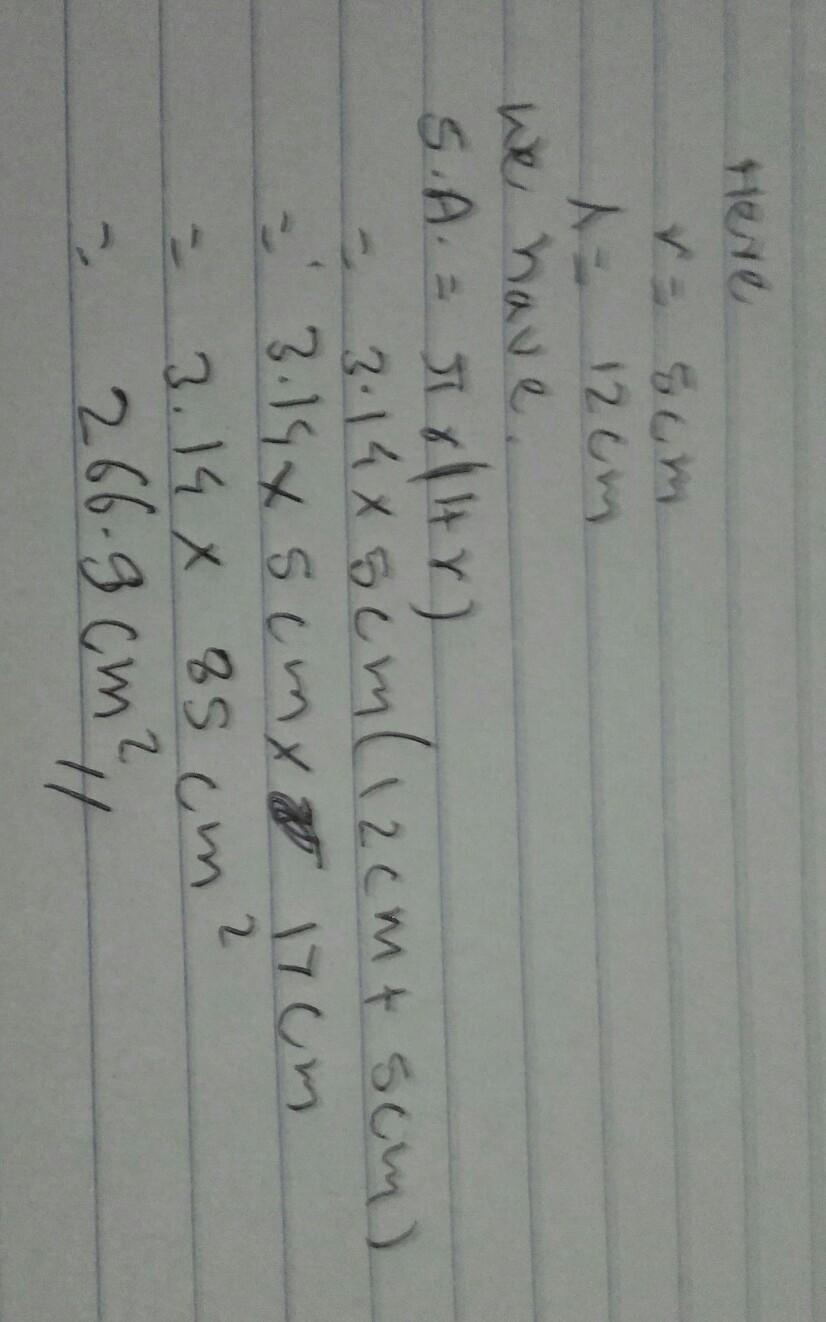 Here
r = 5cm
l = 12cm
We have.
S.A. = πr(l+r)
= 3.14 x 5cm(12cm + 5cm)
= 3.14 x 5cm x 17cm
= 3.14 x 85cm²
= 266.9cm²//